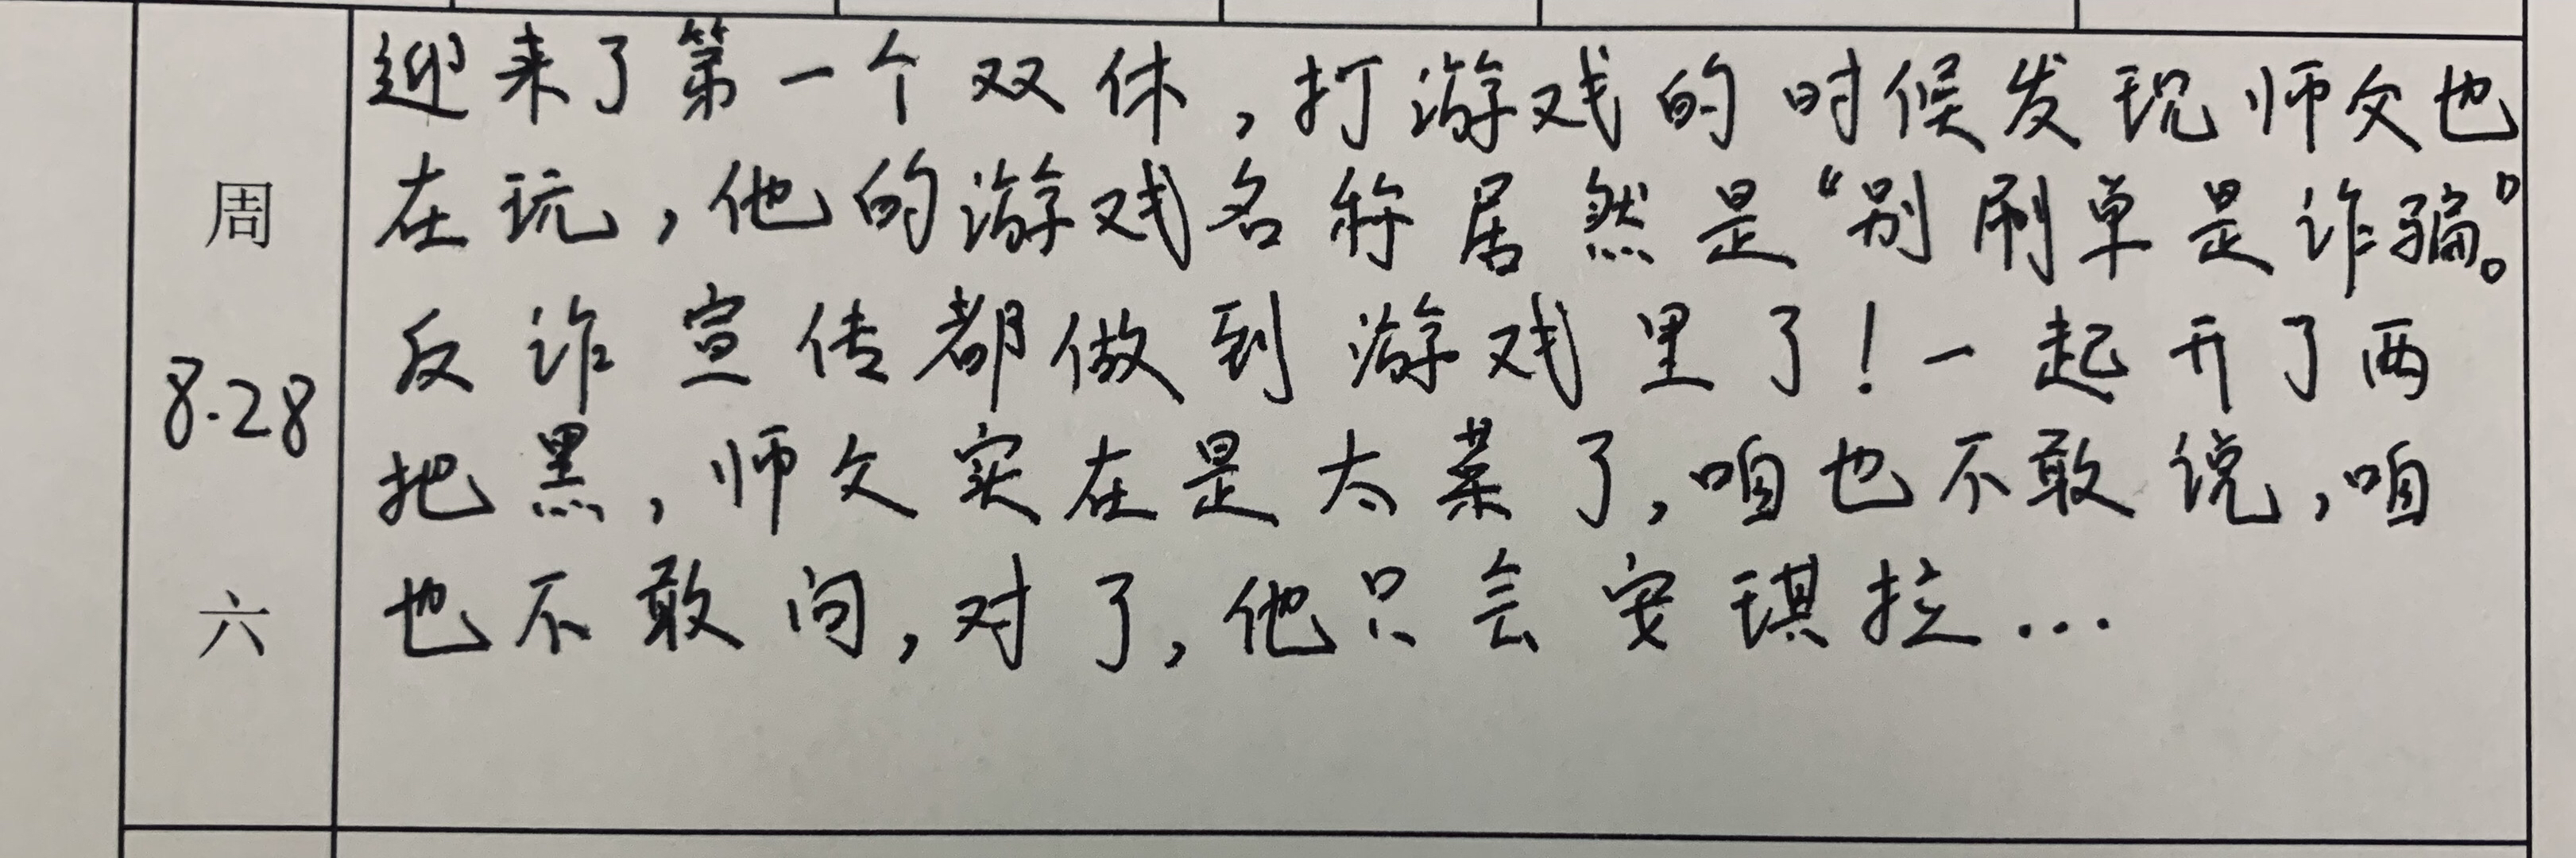 迎来了第一个双休,打游戏的时候发现师父也
在玩,他的游戏名称居然是“别刷单是诈骗”。
反诈宣传都做到游戏里了!一起开了两
把黑,师父实在是太菜了,咱也不敢说,咱
也不敢问,对了,他只会安琪拉...
周
8.28
六